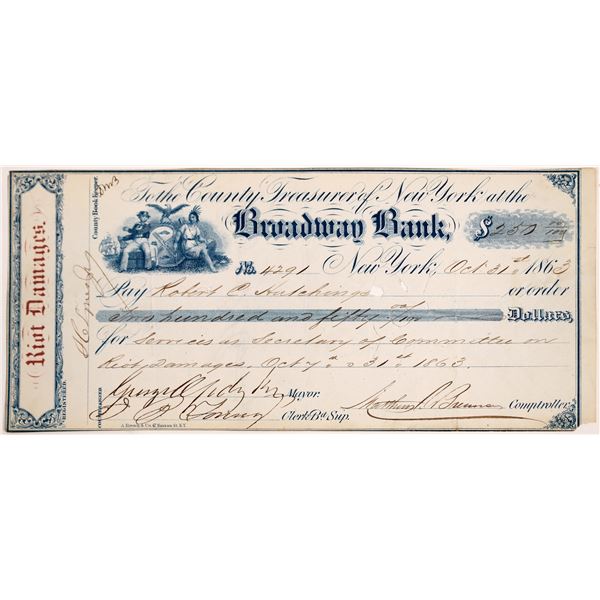 Riot Damages.
REGISTERED.
County Book Keeper.
COUNTERSIGNED
To the County Treasurer of New York at the
Broadway Bank,
$250 00/100
No. 4291 New York, Oct. 31st 1863
Pay Robert C Hutchings or order
Two hundred and fifty 00/100 Dollars,
for Services as Secretary of Committee on
Riot Damages. Oct 7th to 31st 1863.
George Opdyke Mayor.
Clerk Bd. Sup. Matthew T. Brennan Comptroller.